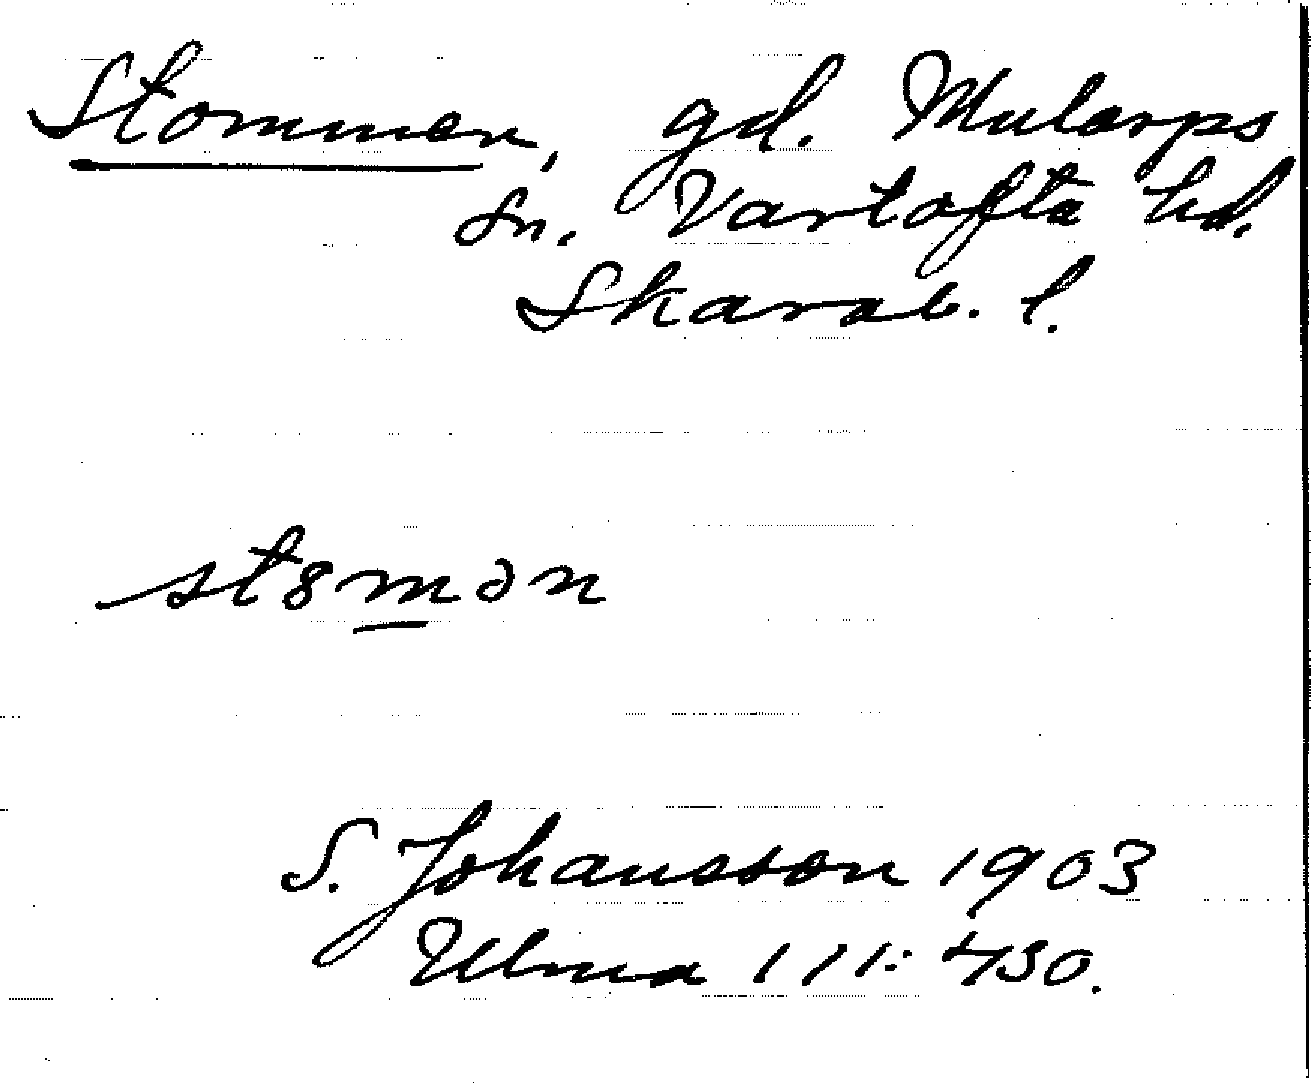 Stommen, gd. Mularps
sn. Vartofta hd.
Skarab. l.
st8mən
S. Johansson 1903
Ulma 111:430.